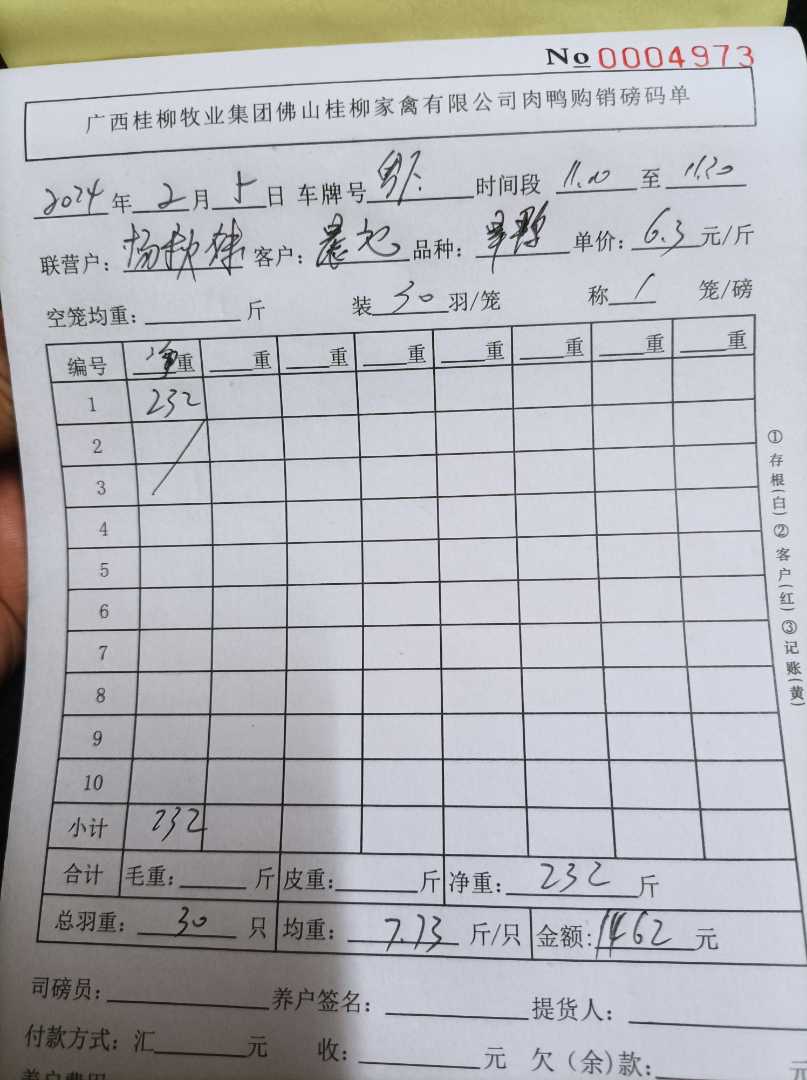 No 0004973
广西桂柳牧业集团佛山桂柳家禽有限公司肉鸭购销磅码单
2024年2月5日 车牌号 时间段 11.00 至 11.20
联营户: 杨秋 客户: 晨旭 品种: 单价: 6.3元/斤
空笼均重: 斤 装30羽/笼 称1 笼/磅
编号 净重 重 重 重 重 重 重 重
1 232
2
3
4
5
6
7
8
9
10
小计 232
合计 毛重: 斤 皮重: 斤 净重: 232 斤
总羽重: 30 只 均重: 7.73 斤/只 金额: 1462 元
司磅员: 养户签名: 提货人:
付款方式: 汇 元 收: 元 欠(余)款: 元
养户费用
①存根(白)②客户(红)③记账(黄)